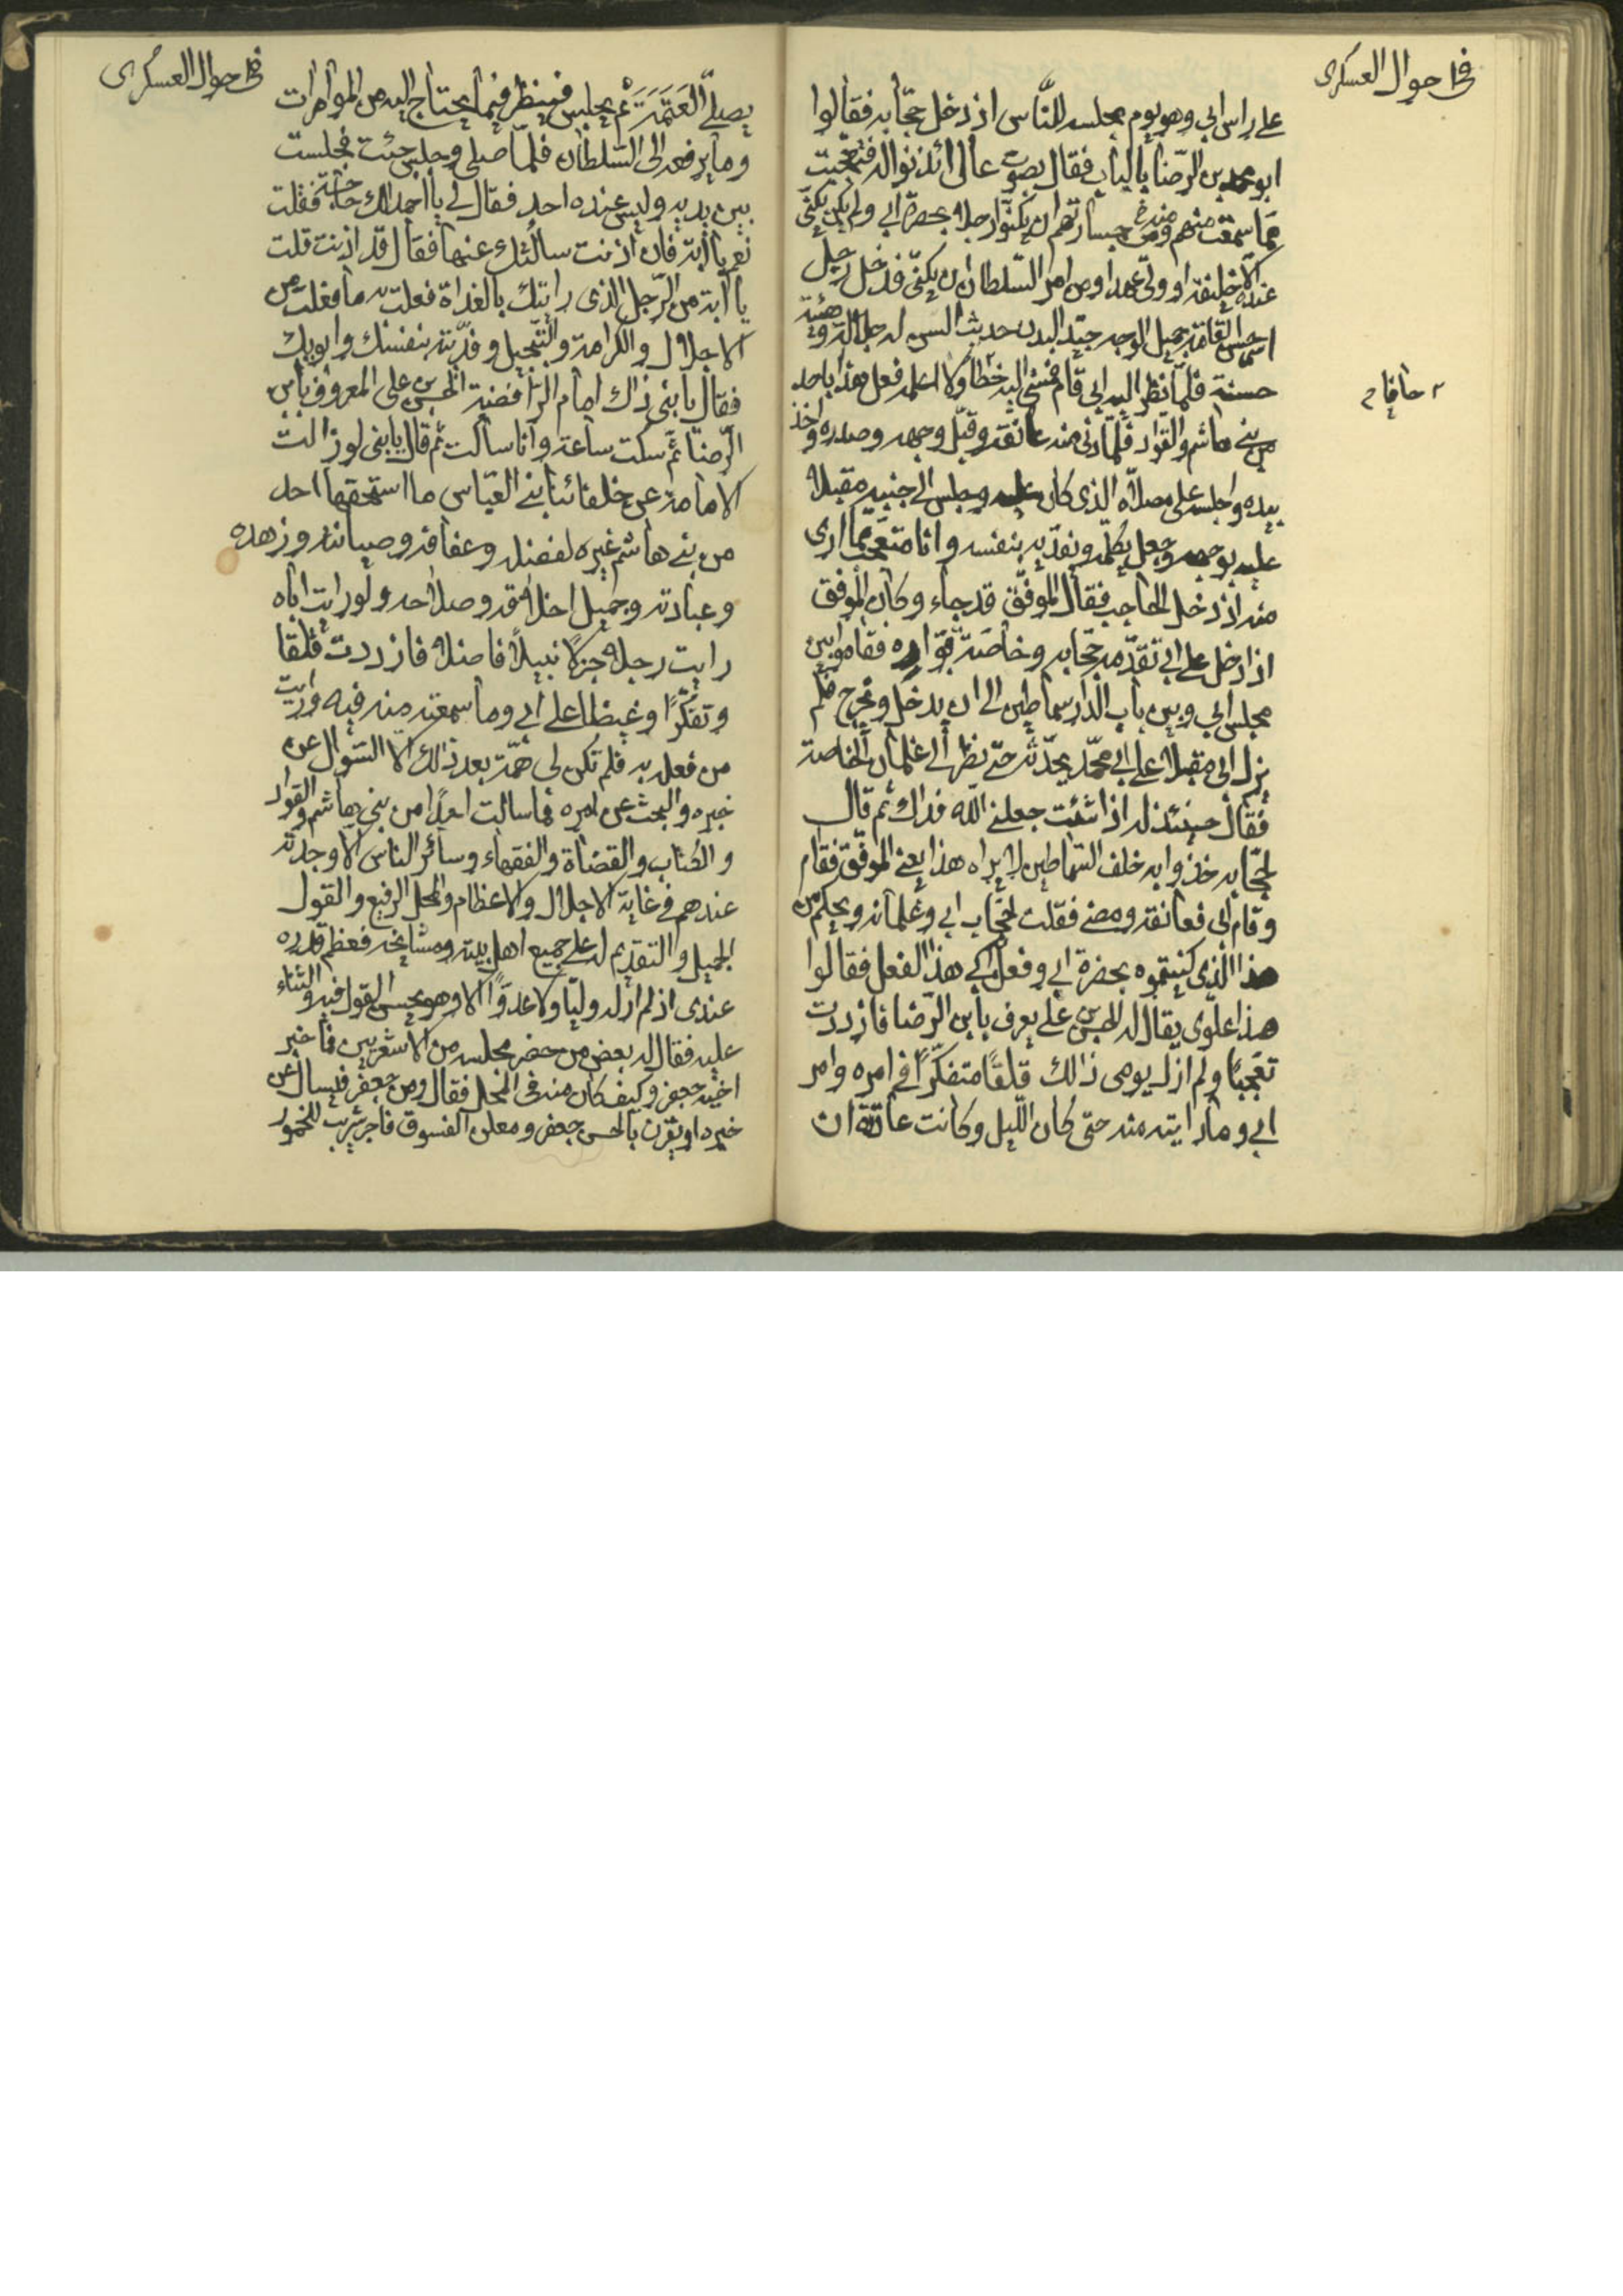 في احوال العسكرى
على راس ابي وهو يوم مجلسه للنّاس اذ دخل حجّابه فقالوا
ابو محمد بن الرّضا بالباب فقال بصوت عالى ائذنوا له فتعجّبت
ممّا سمعت منهم ومن جسارتهم ان يكنّوا رجلا بحضرة ابي ولم يكن يكنّى
عنده الّا خليفة او ولىّ عهد او من امر السّلطان ان يكنّى فدخل رجل
اسمر حسن القامة جميل الوجه جيّد البدن حديث السن له جلالة وهيئة
حسنة فلمّا نظر اليه ابي قام فمشى اليه خطا ولا اعلمه فعل هذا باحد
من بني هاشم والقوّاد فلمّا دنى منه عانقه وقبّل وجهه وصدره واخذ
بيده واجلسه على مصلّاه الذى كان عليه وجلس الى جنبه مقبلا
عليه بوجهه وجعل يكلّمه ويفدّيه بنفسه وانا متعجّب مما ارى
منه اذ دخل الحاجب فقال الموفّق قد جاء وكان الموفق
اذا دخل على ابي تقدّمه حجّابه وخاصّة قوّاده فقاموا بين
مجلس ابي وبين باب الدّار سماطين الى ان يدخل ويخرج فلم
يزل ابى مقبلا على ابي محمّد يحدّثه حتّى نظر الى غلمان الخاصة
فقال حينئذ له اذا شئت جعلني اللّه فداك ثم قال
لحجّابه خذوا به خلف السّماطين لا يراه هذا يعنى الموفّق فقام
وقام ابى فعانقه ومضى فقلت لحجّاب ابي وغلمانه ويحكم من
هذا الّذى كنيتموه بحضرة ابي وفعل به ابي هذا الفعل فقالوا
هذا علوى يقال له الحسن بن على يعرف بابن الرّضا فازددت
تعجّبا ولم ازل يومى ذالك قلقا متفكّرا في امره وامر
ابي وما رايته منه حتى كان اللّيل وكانت عادته ان
في احوال العسكرى
يصلّى العَتَمَةَ ثم يجلس فينظر فيما يحتاج اليه من الموامرات
وما يرفعه الى السّلطان فلمّا صلى وجلس جئت فجلست
بين يديه وليس عنده احد فقال لي يا احمد الك حاجة فقلت
نعم يا ابة فان اذنت سالتك عنها فقال قد اذنت قلت
يا ابة من الرّجل الذى رايتك بالغداة فعلت به ما فعلت من
الاجلال والكرامة والتّبجيل وفدّيته بنفسك وابويك
فقال يا بنى ذاك امام الرّافضة الحسن بن على المعروف بابن
الرّضا ثمّ سكت ساعة وانا ساكت ثم قال يا بنى لو زالت
الامامة عن خلفائنا بني العبّاس ما استحقّها احد
من بني هاشم غيره لفضله وعفافه وصيانته وزهده
وعبادته وجميل اخلاقه وصلاحه ولو رايت اباه
رايت رجلا جزلا نبيلاً فاضلا فازددت قلقا
وتفكّرًا وغيظا على ابي وما سمعته منه فيه ورايت
من فعله به فلم تكن لى همّة بعد ذالك الا السّوال عن
خبره والبحث عن امره فما سالت احدًا من بني هاشم والقواد
والكتاب والقضاة والفقهاء وسائر الناس الّا وجدته
عندهم في غاية الاجلال والاعظام والمحل الرفيع والقول
الجميل والتقديم له على جميع اهل بيته ومشايخه فعظم قدره
عندى اذ لم ار له وليّا ولا عدوّا الا وهو يحسن القول فيه والثناء
عليه فقال له بعض من حضر مجلسه من الاشعريين فما خبر
اخيه جعفر وكيف كان منه فى المحل فقال ومن جعفر فيسال عن
خبره او يقرن بالحسن جعفر ومعلن الفسوق فاجر شريب للخمور